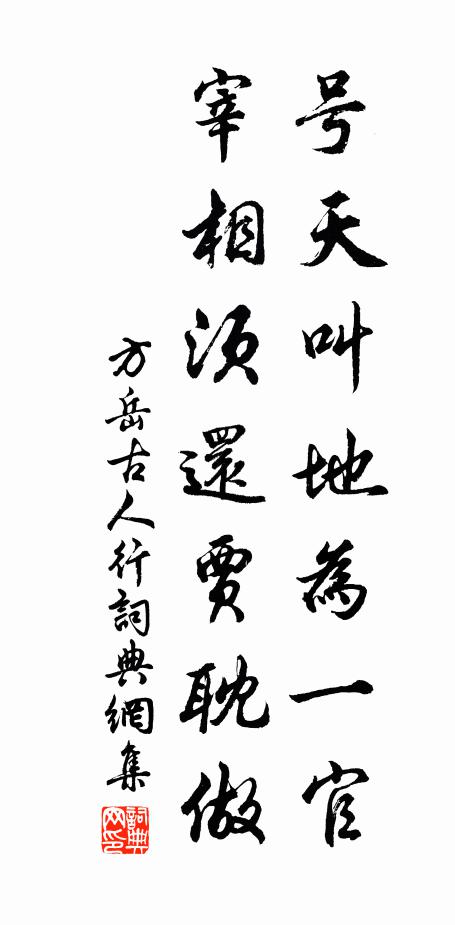 号天叫地為一官
宰相須還賈耽做
方岳古人行詞典網集
詞典網印